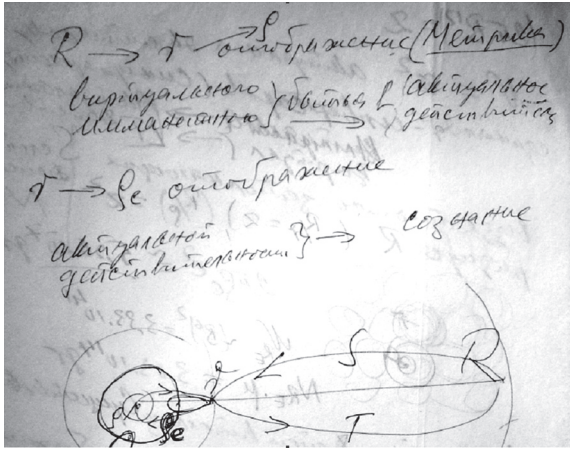 R → r → ρ отображение (Метрика)
виртуального имманентного } бытия → r (актуальное действител
r → ρe отображение
актуальной действительности } → сознание
r S R
ρe T